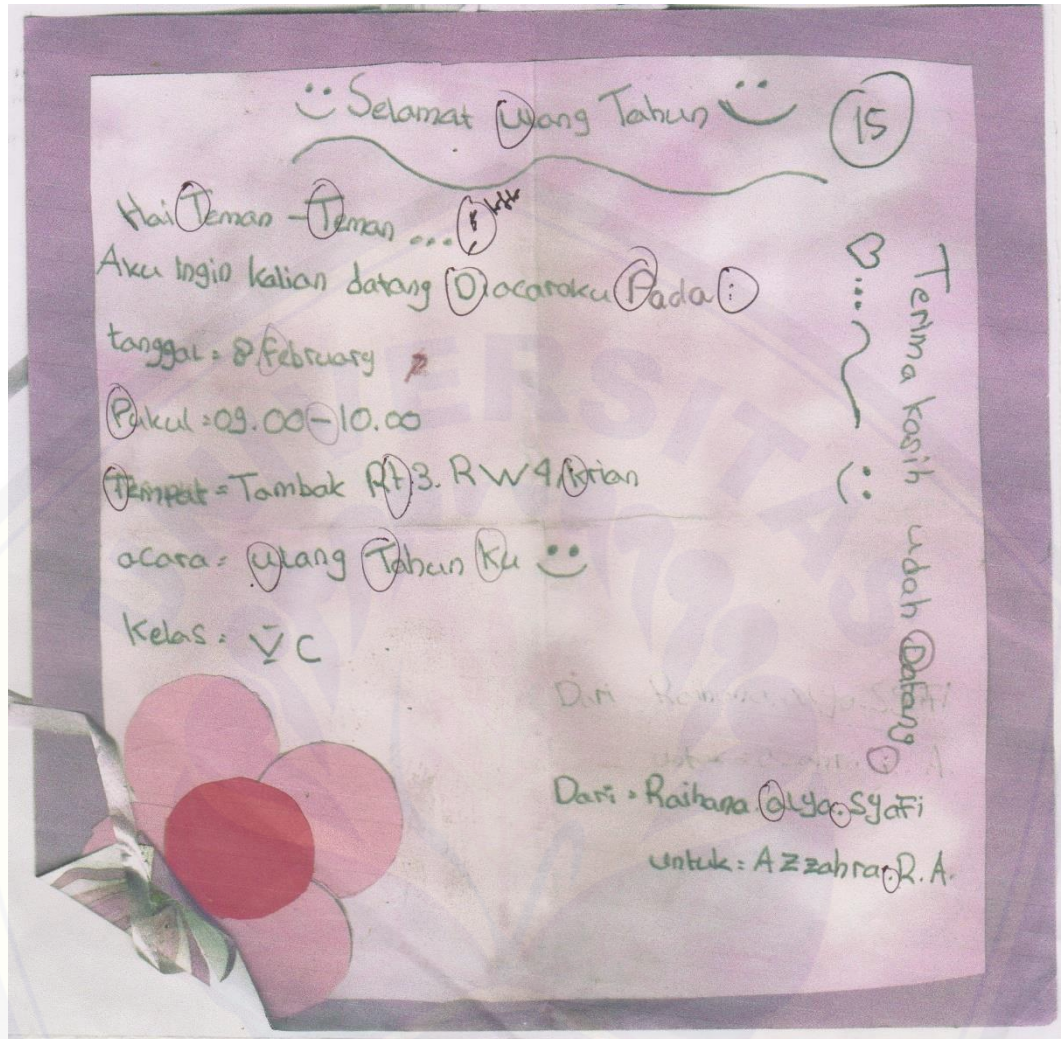 Selamat Ulang Tahun
15
Hai Teman - Teman ....
Aku Ingin kalian datang Diacaraku Pada :
tanggal = 8 February
Pukul = 09.00 - 10.00
Tempat = Tambak Rt 3. RW 4, krian
acara = ulang Tahun ku
Kelas = V C
Terima kasih udah Datang :
Dari = Raihana. alya. SyaFi
untuk = AZzahra. R. A.
UNIVERSITAS